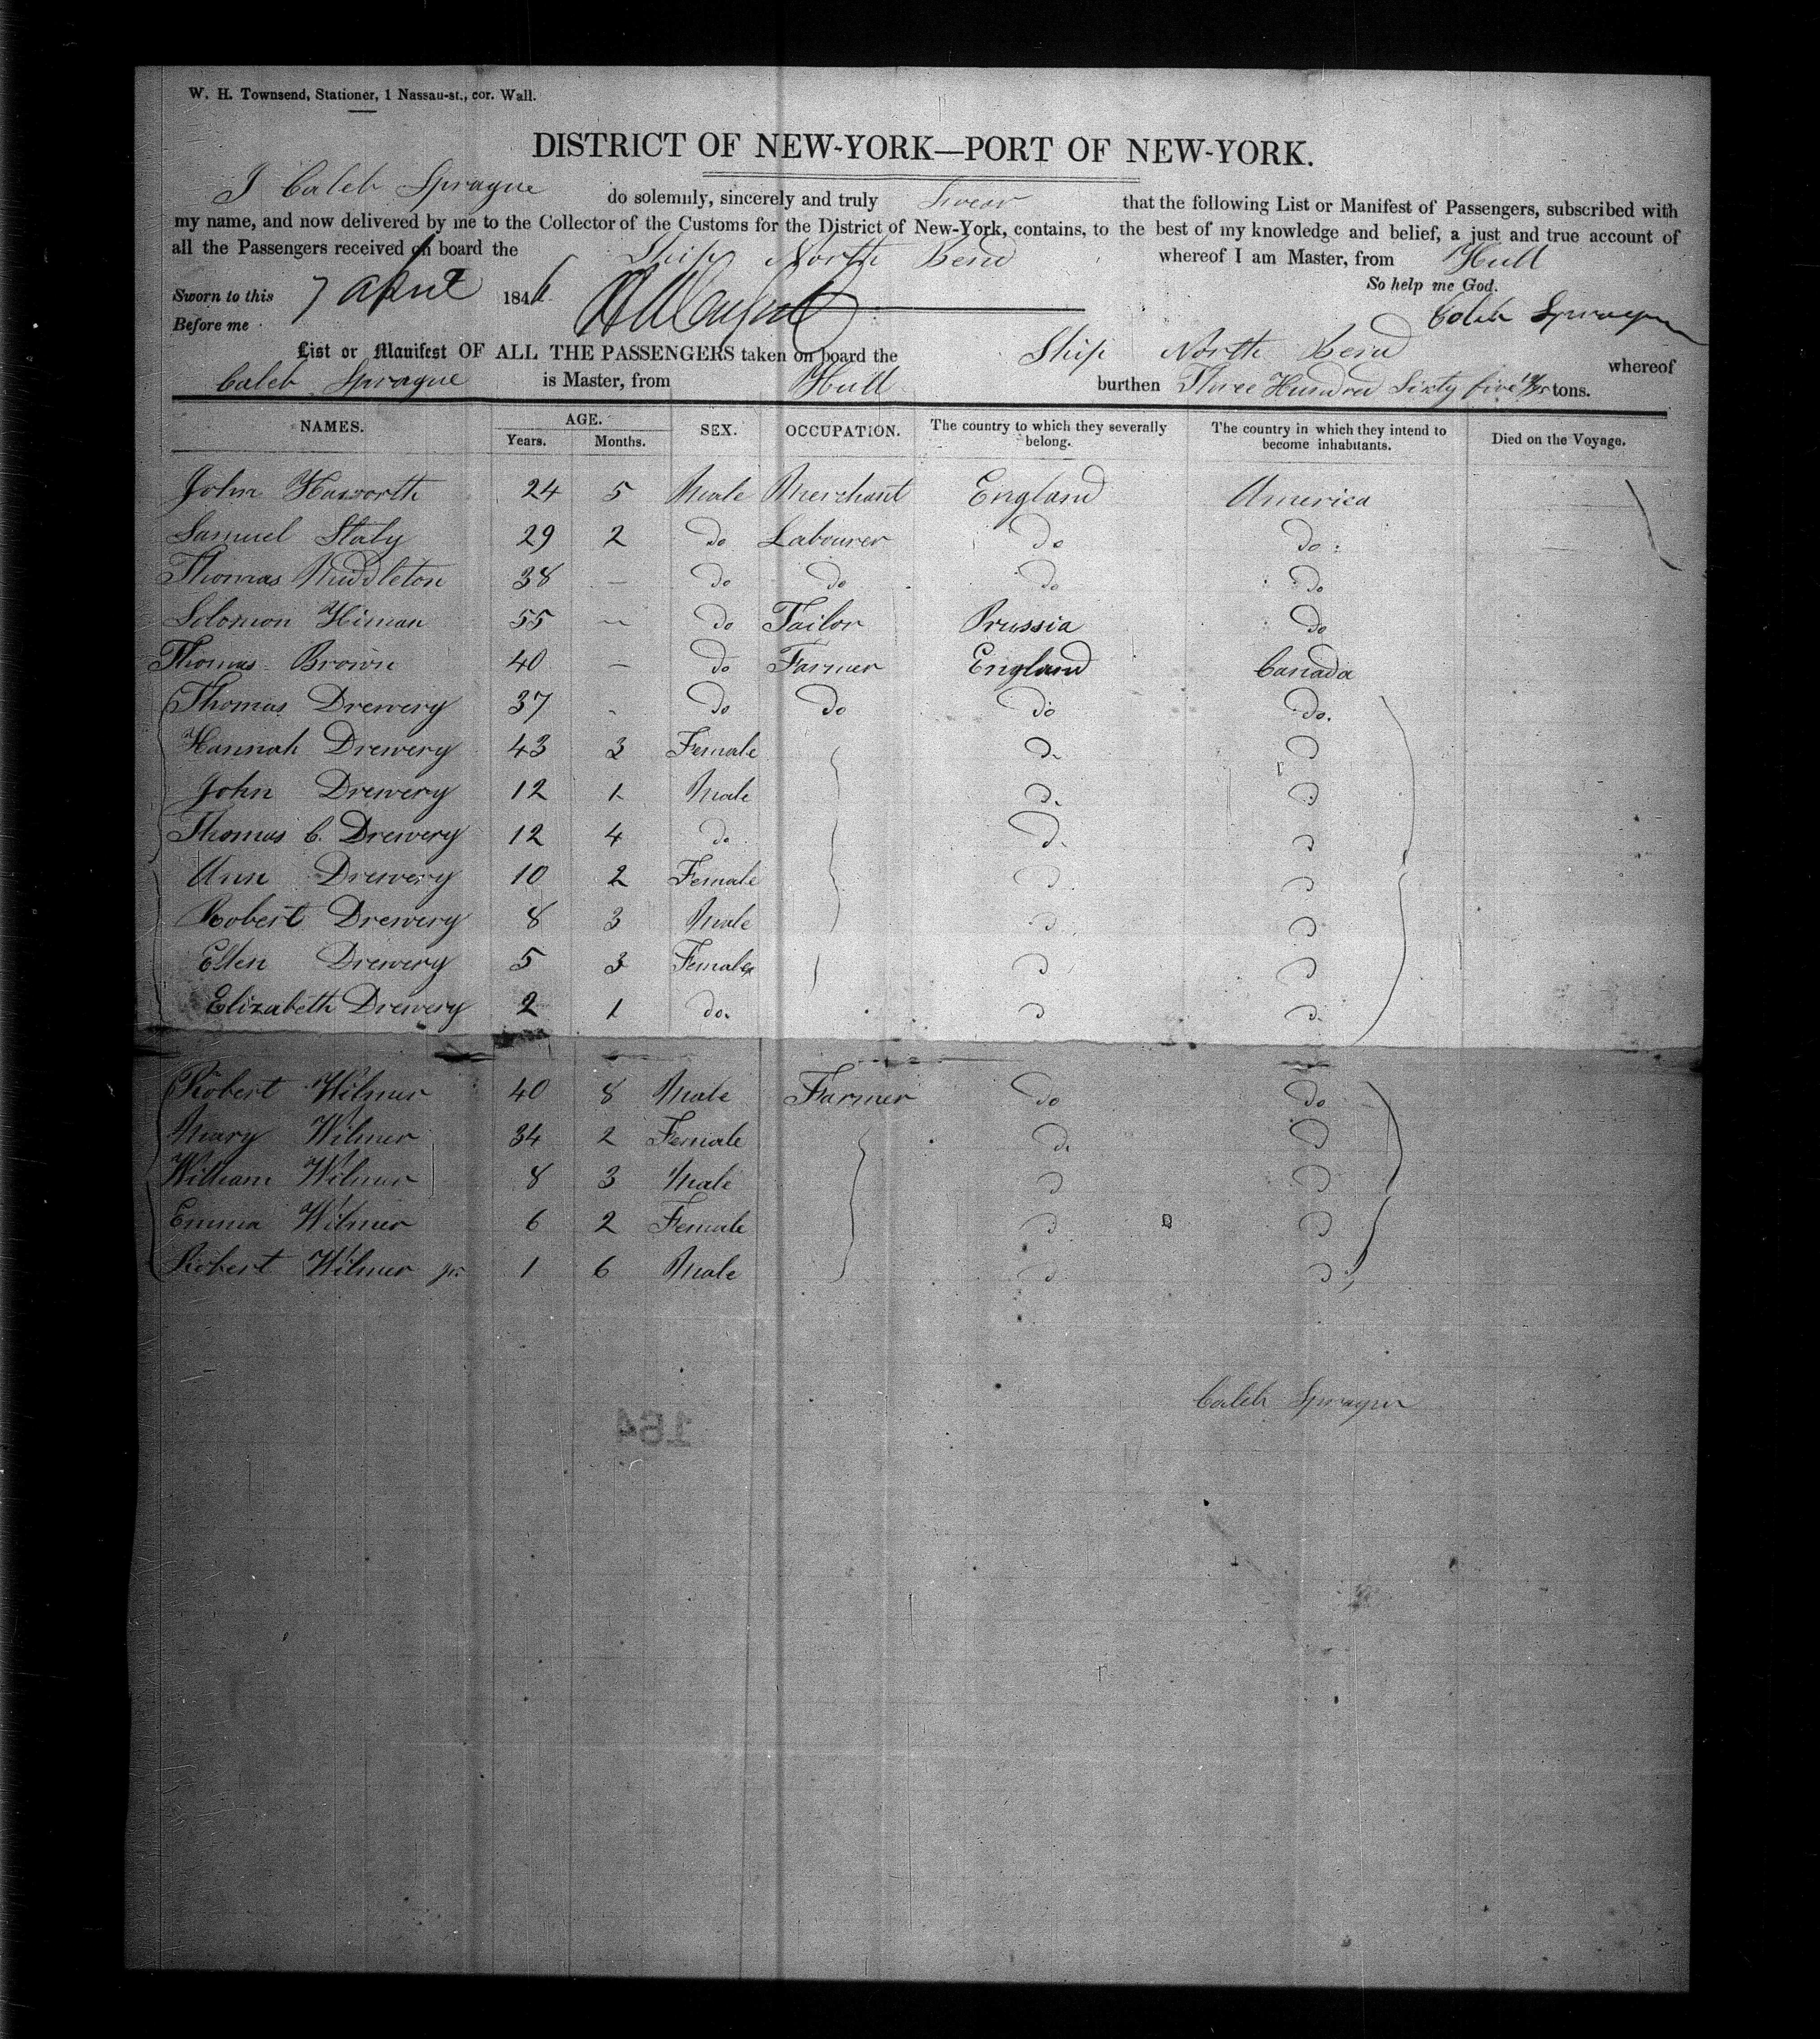 W. H. Townsend, Stationer, 1 Nassau-st., cor. Wall.
DISTRICT OF NEW-YORK—PORT OF NEW-YORK.
I Caleb Sprague do solemnly, sincerely and truly Swear that the following List or Manifest of Passengers, subscribed with
my name, and now delivered by me to the Collector of the Customs for the District of New-York, contains, to the best of my knowledge and belief, a just and true account of
all the Passengers received on board the Ship North Bend whereof I am Master, from Hull
So help me God.
Sworn to this 7 April 1846
Before me
Caleb Sprague
List or Manifest OF ALL THE PASSENGERS taken on board the Ship North Bend whereof
Caleb Sprague is Master, from Hull burthen Three Hundred Sixty five tons.
NAMES. AGE. Years. Months. SEX. OCCUPATION. The country to which they severally belong. The country in which they intend to become inhabitants. Died on the Voyage.
John Haworth 24 5 Male Merchant England America
Samuel Staly 29 2 do Labourer do do
Thomas Middleton 38 — do do do do
Solomon Himan 55 — do Tailor Prussia do
Thomas Brown 40 — do Farmer England Canada
Thomas Drewery 37 - do do do do.
Hannah Drewery 43 3 Female d. d
John Drewery 12 1 Male d. d
Thomas C. Drewery 12 4 do d. d
Ann Drewery 10 2 Female d d
Robert Drewery 8 3 Male d d
Ellen Drewery 5 3 Female d d
Elizabeth Drewery 2 1 do. d d.
Robert Wilmer 40 8 Male Farmer do do
Mary Wilmer 34 2 Female d. d
William Wilmer 8 3 Male d d
Emma Wilmer 6 2 Female d d
Robert Wilmer jr. 1 6 Male d d
Caleb Sprague
164